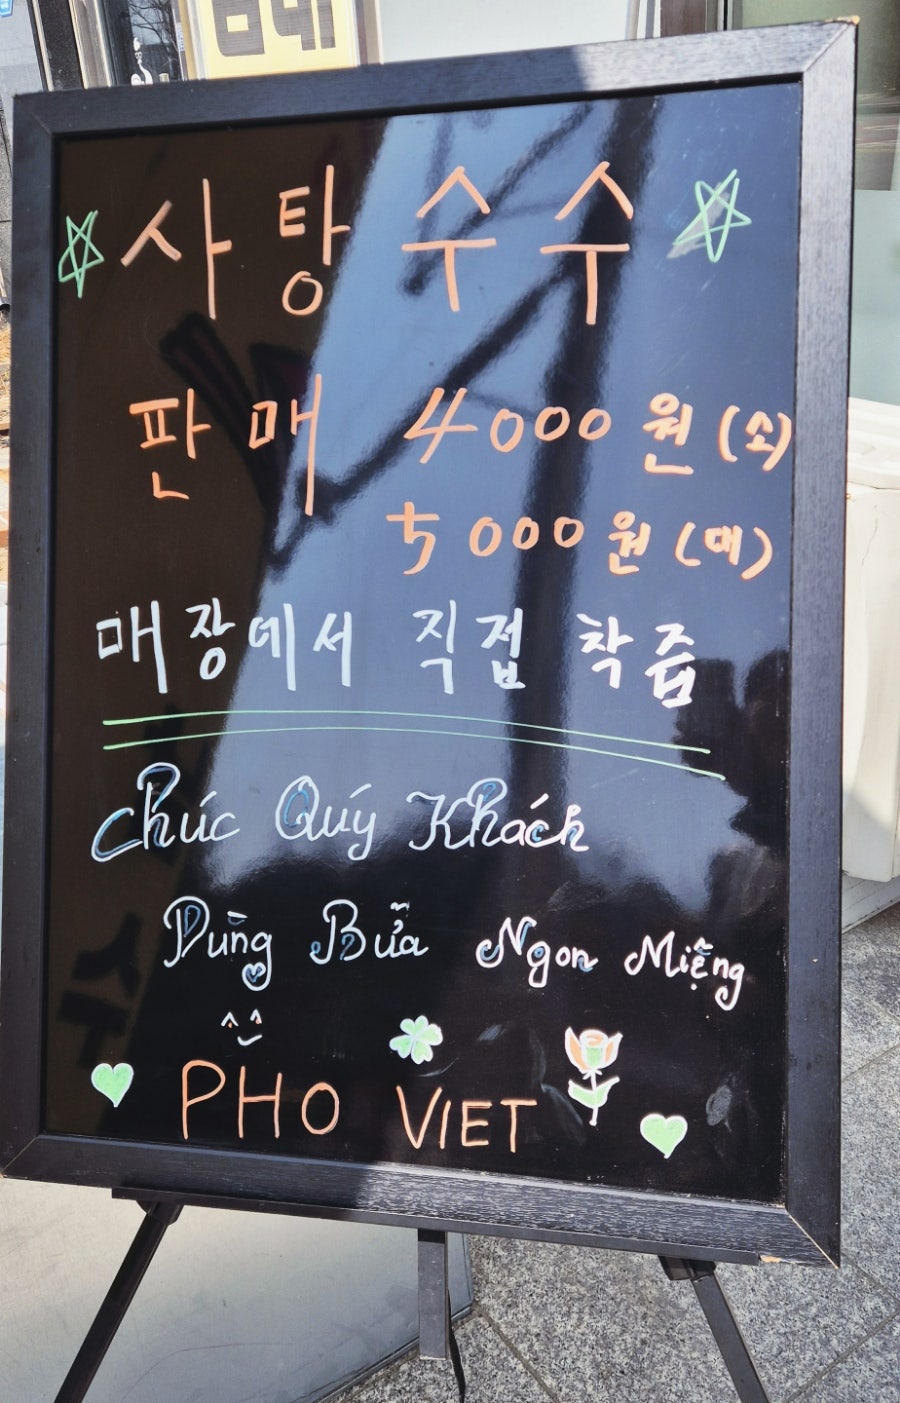 사탕수수
판매 4000원 (소)
5000원 (대)
매장에서 직접 착즙
Chúc Quý Khách
Dùng Bữa Ngon Miệng
PHO VIET